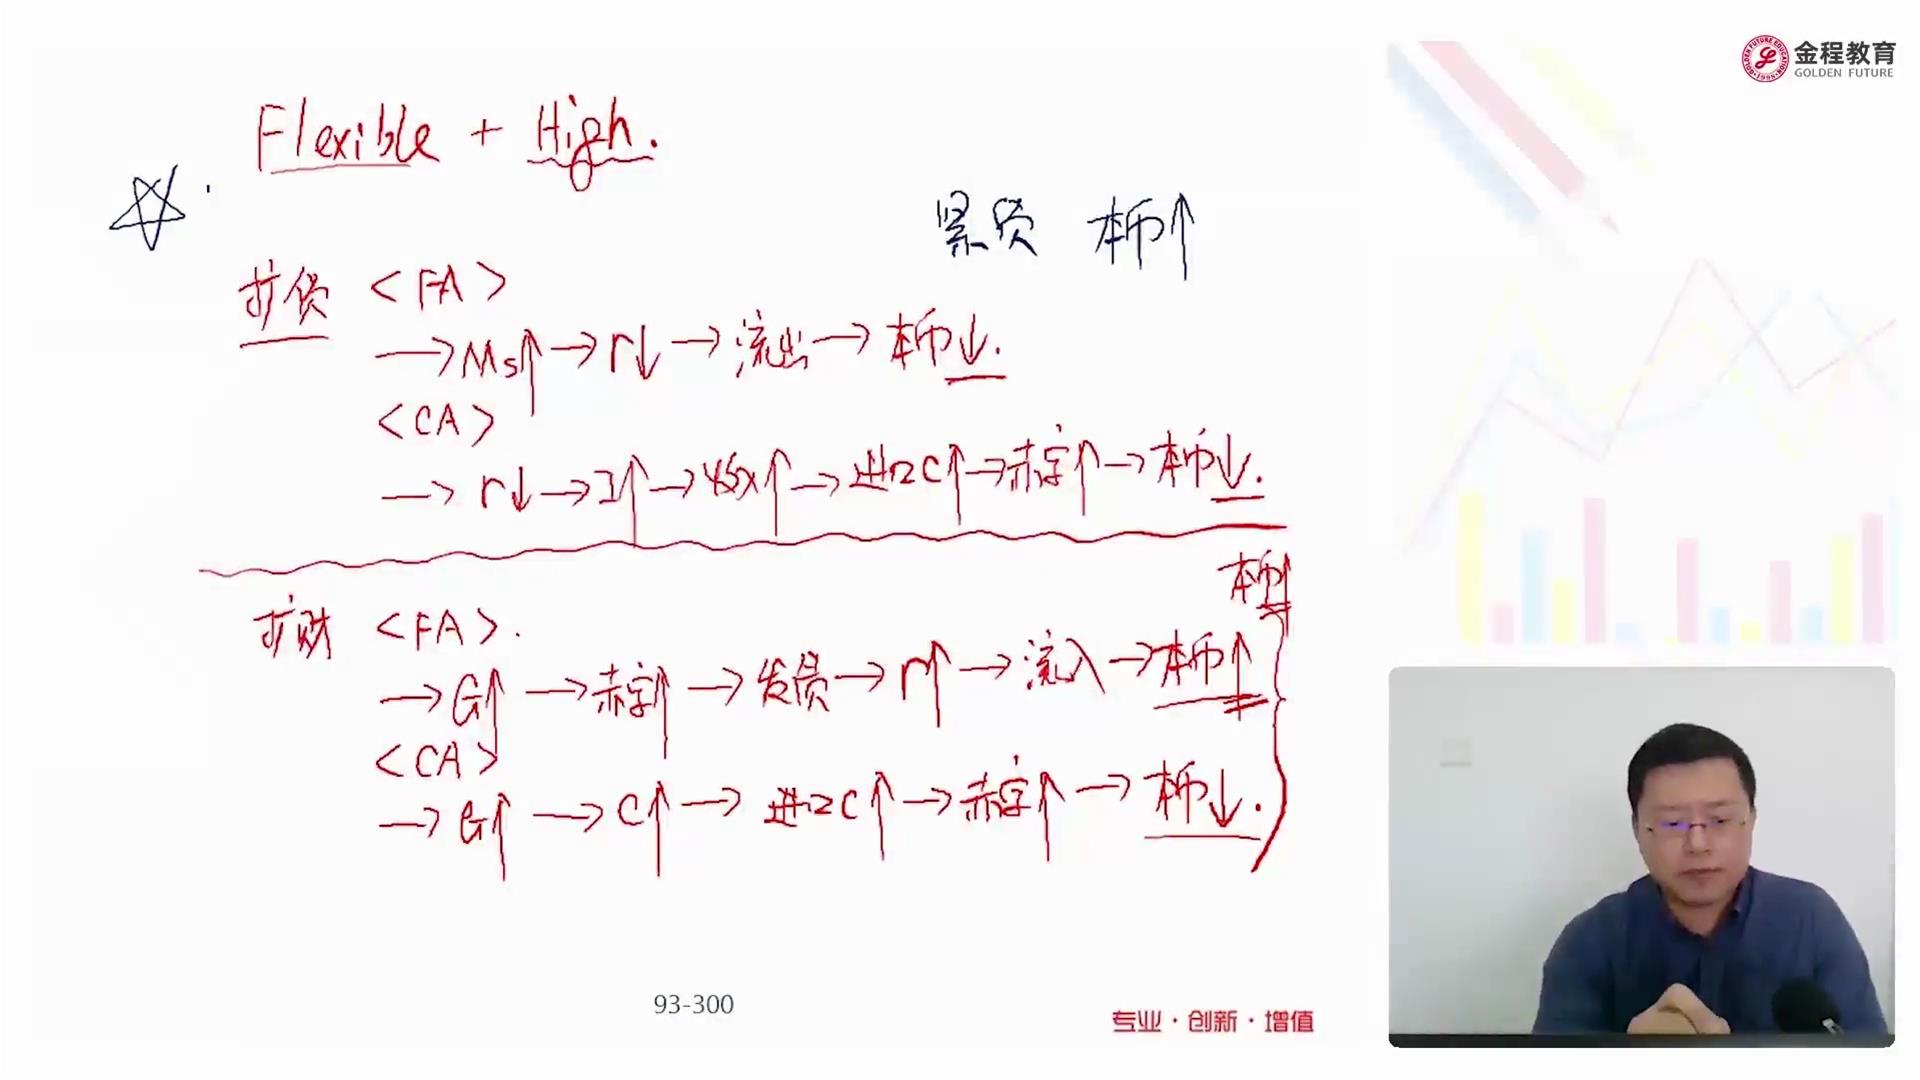 金程教育
GOLDEN FUTURE
Flexible + High.
紧货 本币↑
扩货 <FA>
→Ms↑→r↓→流出→本币↓.
<CA>
→r↓→I↑→收入↑→进口C↑→赤字↑→本币↓.
本币↑
扩财 <FA>.
→G↑→赤字↑→发债→r↑→流入→本币↑
<CA>
→G↑→C↑→进口C↑→赤字↑→本币↓.
93-300
专业·创新·增值